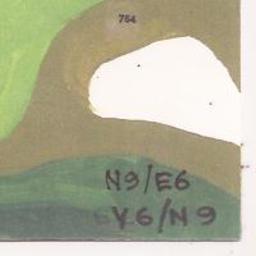 764
N9/E6
Y6/N9